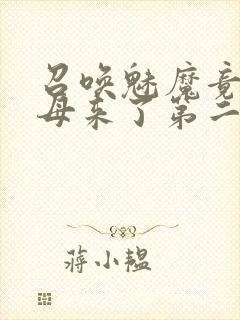 召唤魅魔竟
母来了第二
蒋小韫